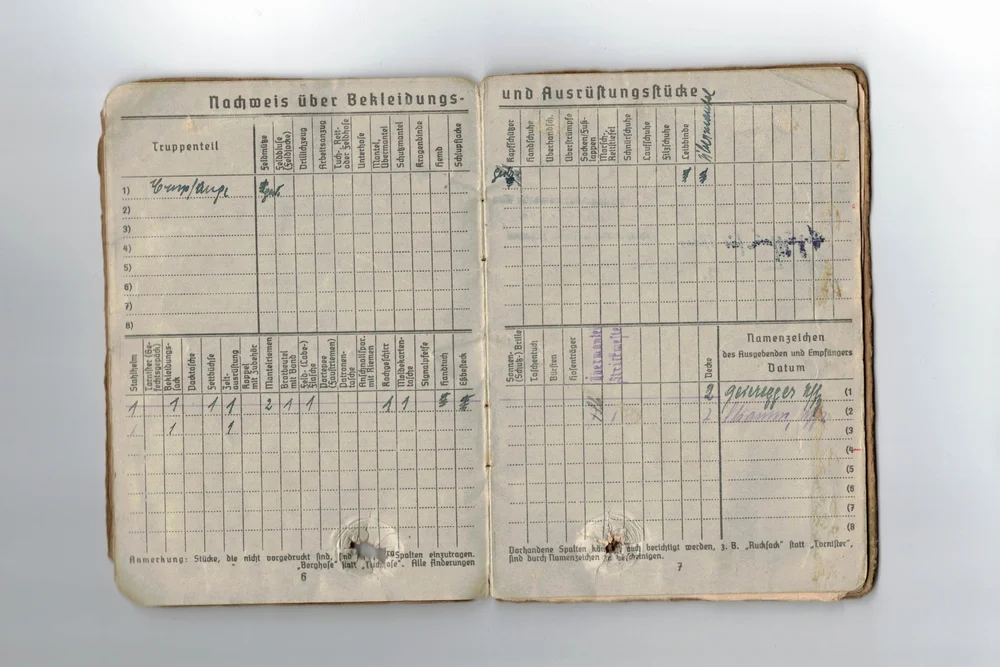 Nachweis über Bekleidungs-
Truppenteil
Feldmütze
Feldbluse
(Feldjacke)
Drillichzeug
Arbeitsanzug
Tuch-, Reit-
oder Feldhose
Unterhose
Mantel,
Übermantel
Schutzmantel
Kragenbinde
Hemd
Schlupfjacke
1)
2)
3)
4)
5)
6)
7)
8)
Stahlhelm
Tornister (Ge-
fechtsgepäck)
Bekleidungs-
sack
Packtasche
Fettbüchse
Zelt-
ausrüstung
Koppel
mit Zubehör
Mantelriemen
Brotbeutel
mit Band
Feld- (Labe-)
Flasche
Portepee
(Faustriemen)
Patronen-
tasche
Anschnallspor.
mit Riemen
Kochgeschirr
Meldekarten-
tasche
Signalpfeife
Handtuch
Eßbesteck
1 1 1 1 2 1 1 1 1
1 1
Anmerkung: Stücke, die nicht vorgedruckt sind, sind Spalten einzutragen.
„Berghose" statt „Tuchhose". Alle Änderungen
6
und Ausrüstungsstücke
Kopfschützer
Handschuhe
Überhandsch.
Überstrümpfe
Socken/Fuß-
lappen
Marsch-,
Reitstiefel
Schnürschuhe
Laufschuhe
Filzschuhe
Leibbinde
Übermantel
Sonnen-
(Schutz-) Brille
Taschentuch
Bürsten
Hosenträger
Decke
Namenzeichen
des Ausgebenden und Empfängers
Datum
2
(1
1 2
(2
(3
(4
(5
(6
(7
(8
Vorhandene Spalten können auch berichtigt werden, z. B. „Rucksack" statt „Tornister",
sind durch Namenzeichen zu bescheinigen.
7